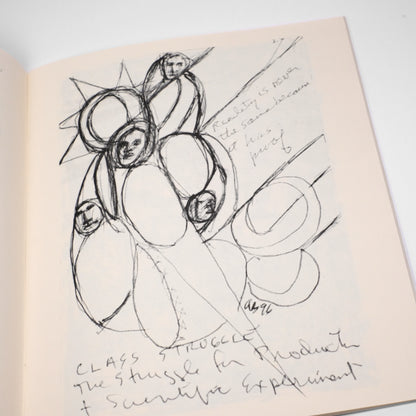 Reality is never
the same because
it has
proof
AB 96
CLASS STRUGGLE
The Struggle for Production
+ Scientific Experiment